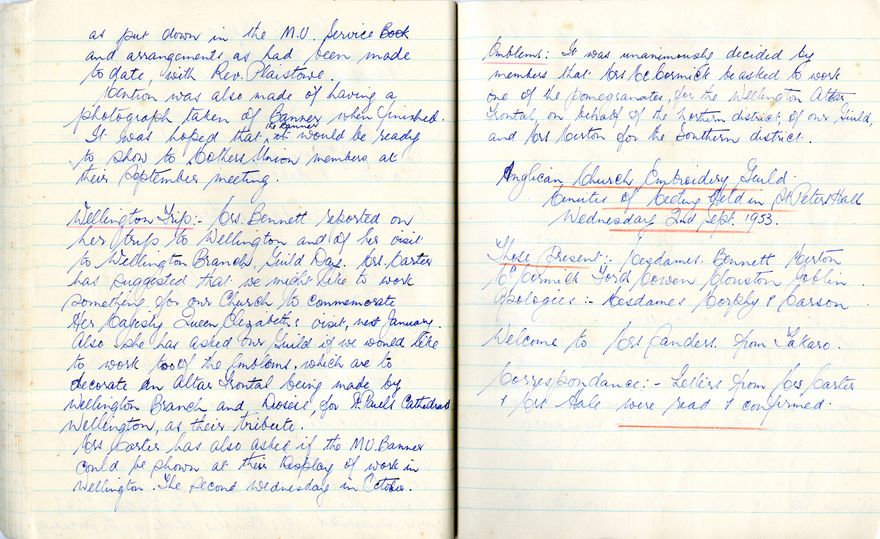 as put down in the M.U. Service Book
and arrangements as had been made
to date, with Rev. Plaistowe.
Mention was also made of having a
photograph taken of Banner when finished.
It was hoped that, the Banner would be ready
to show to Mothers Union members at
their September meeting.
Wellington Trip:- Mrs. Bennett reported on
her trip to Wellington and of her visit
to Wellington Branch, Guild Day. Mrs. Carter
has suggested that we might like to work
something for our Church to commemorate
Her Majesty Queen Elizabeth's visit, next January.
Also she has asked our Guild if we would like
to work two of the Emblems, which are to
decorate an Altar Frontal being made by
Wellington Branch and Diocese, for St. Paul's Cathedral
Wellington, as their tribute.
Mrs Carter has also asked if the M.U. Banner
could be shown at their Display of work in
Wellington. The Second Wednesday in October.
Emblems: It was unanimously decided by
members that Mrs McCormick be asked to work
one of the Pomegranates, for the Wellington Altar
Frontal, on behalf of the Northern district, of our Guild,
and Mrs Merton for the Southern district.
Anglican Church Embroidery Guild.
Minutes of Meeting Held in St Peters Hall
Wednesday 2nd Sept. 1953.
Those Present:- Mesdames. Bennett Merton
McCormick Ford Cowen Houston Joblin.
Apologies:- Mesdames Corphy & Carson.
Welcome to Mrs Sanders. from Takaro.
Correspondance:- Letters from Mrs Carter
& Mrs Hale were read & confirmed.